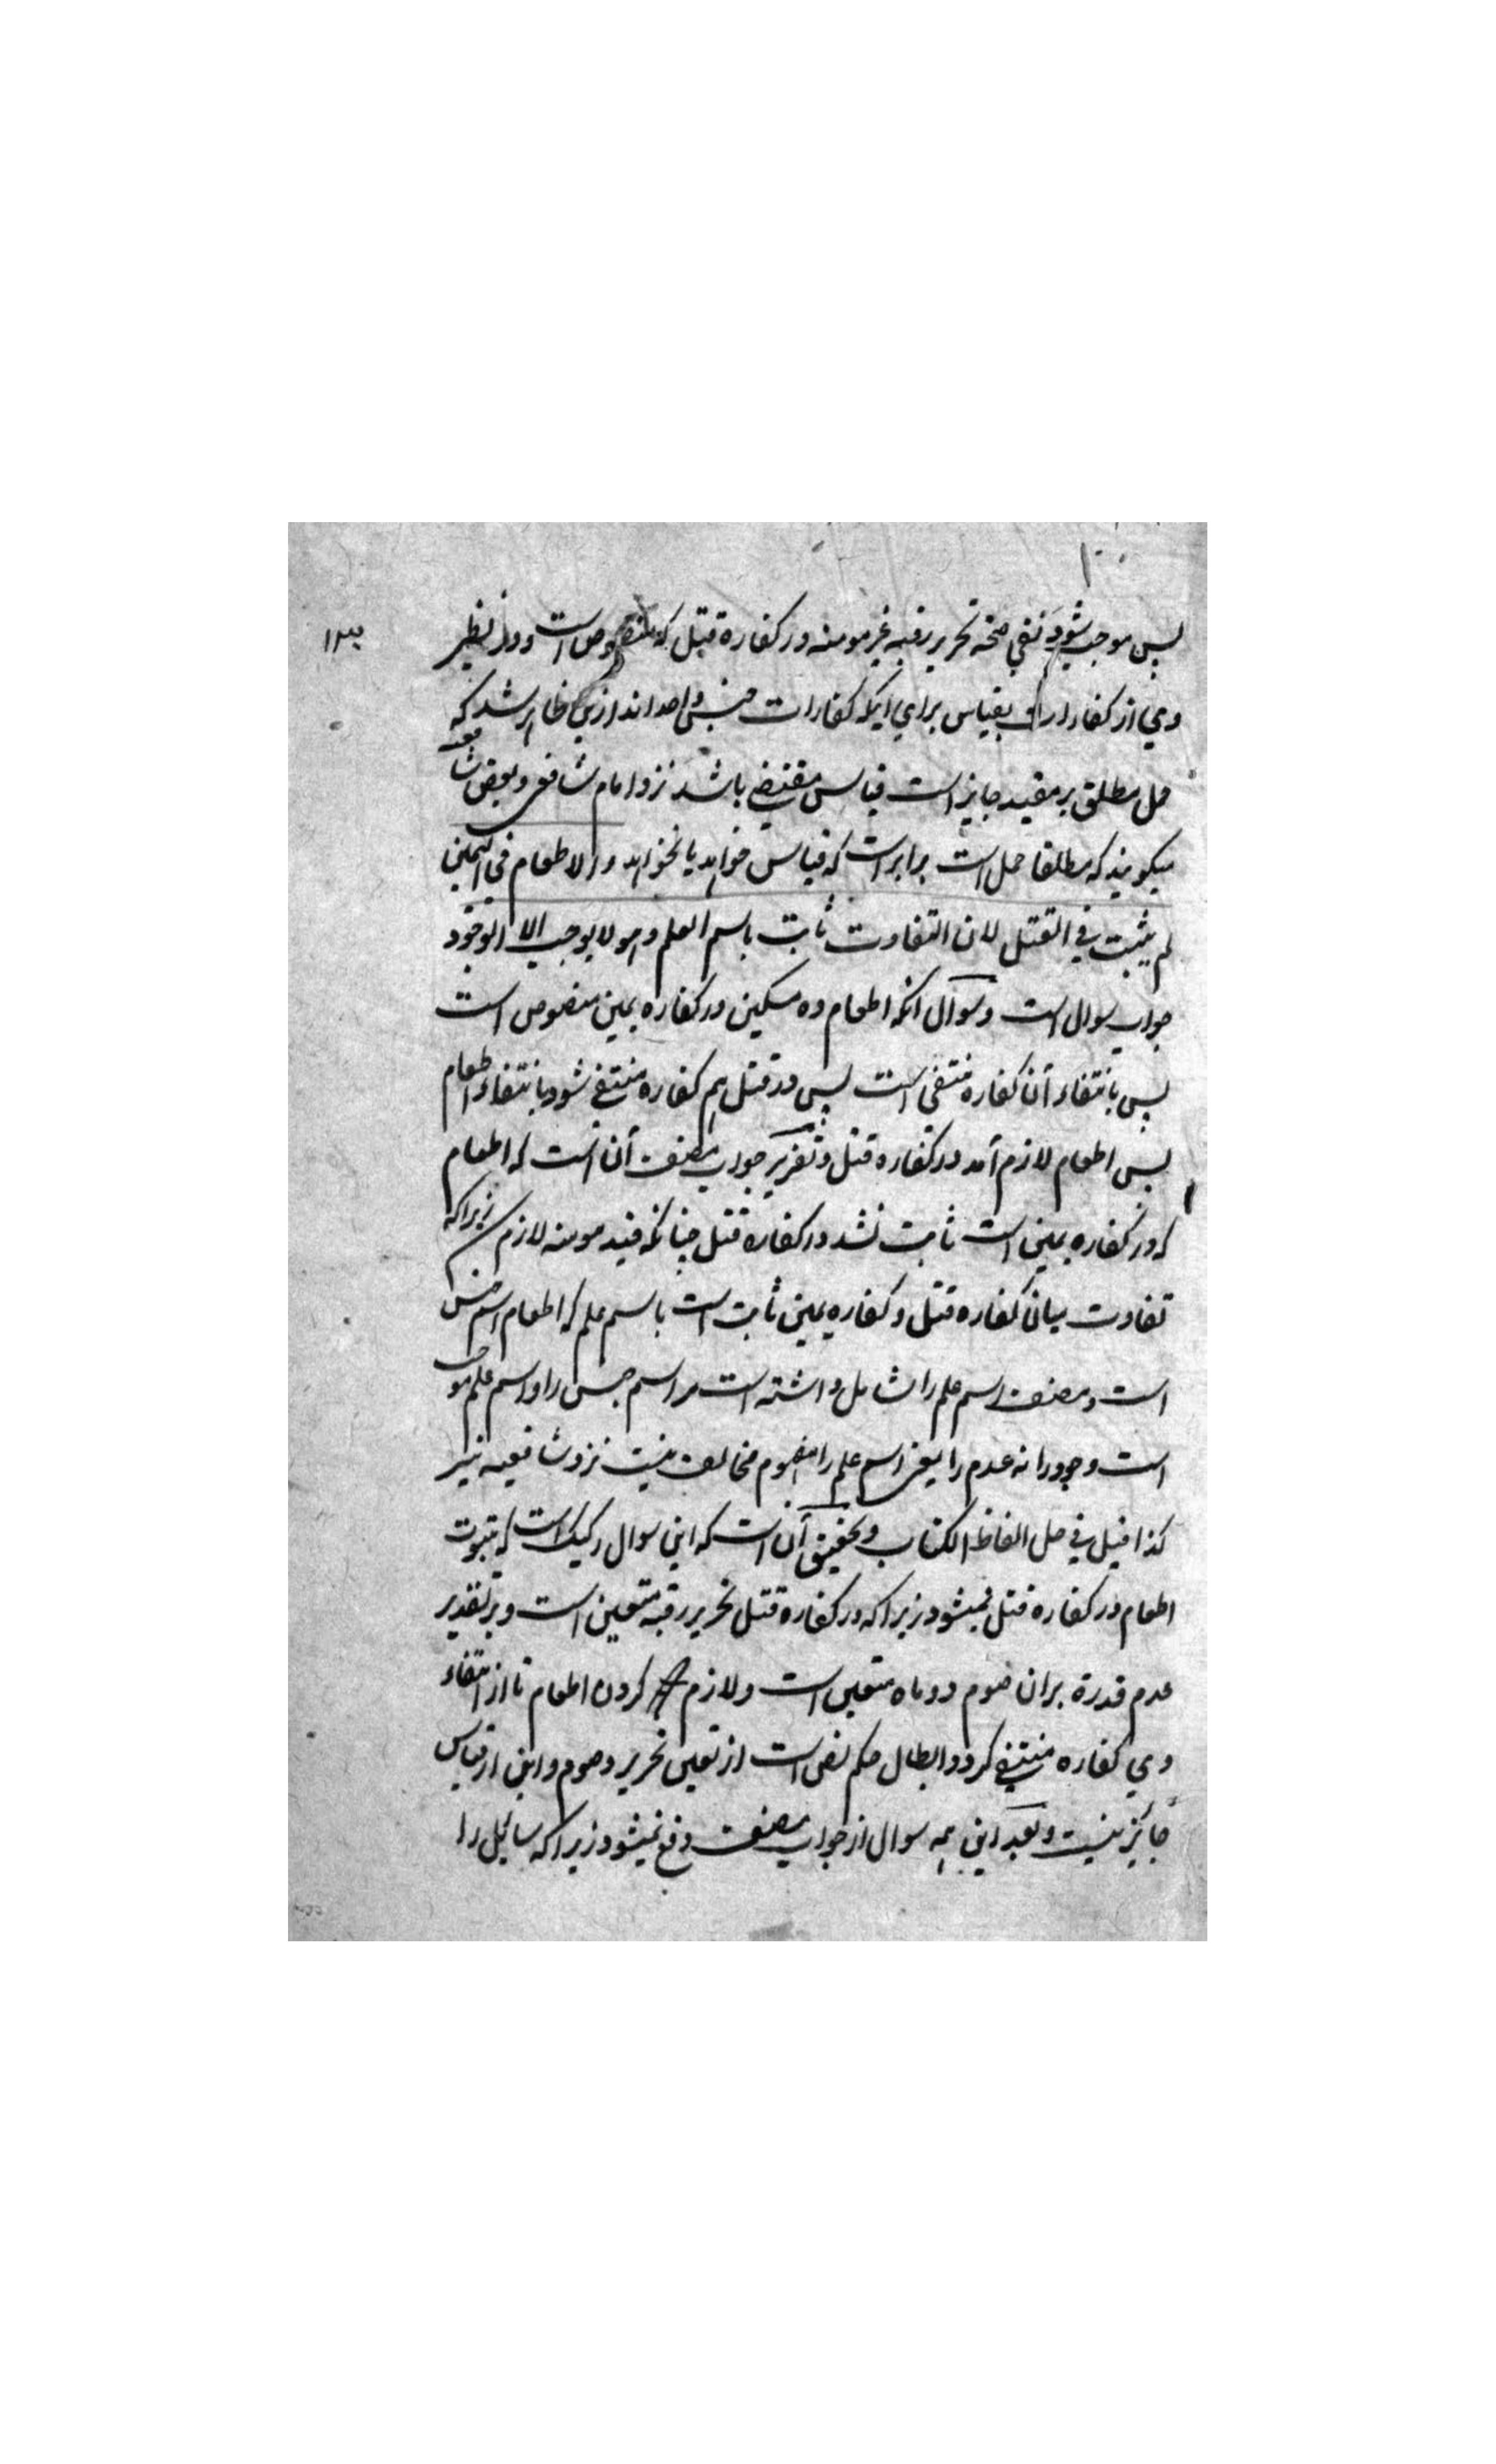 پس موجب شود نفی صحة تحریر رقبه غیر مومنه در کفارة قتل که منصوص است و در نظیر
وی از کفارات بقیاس برای اینکه کفارات جنس واحد اند ازین ظاهر شد که
حمل مطلق بر مقید جایز است قیاس مقتضی باشد نزد امام شافعی و بعض شافعیه
میگویند که مطلقا حمل است برابر است که قیاس خواهد یا نخواهد والاطعام فی الیمین
لم یثبت فی القتل لان التفاوت ثابت باسم العلم وهو لا یوجب الا الوجود
جواب سوال است و سوال آنکه اطعام ده مسکین در کفاره یمین منصوص است
پس بانتفاء آن کفاره منتفی است پس در قتل هم کفاره منتفی شود بانتفاء اطعام
پس اطعام لازم آمد در کفاره قتل و تقریر جواب مصنف آن است که اطعام
که در کفاره یمین است ثابت نشد در کفارة قتل چنانکه قید مومنه لازم زیراکه
تفاوت میان کفاره قتل و کفاره یمین ثابت است باسم علم که اطعام اسم جنس
است و مصنف اسم علم را شامل داشته است مر اسم جنس را و اسم علم موجب
است وجود را نه عدم را یعنی اسم علم را مفهوم مخالف نیست نزد شافعیه نیز
کذا قیل فی حل الفاظ الکتاب و تحقیق آن است که این سوال رکیک است که ثبوت
اطعام در کفاره قتل نمیشود زیراکه در کفارة قتل تحریر رقبه متعین است و بر تقدیر
عدم قدرة بران صوم دو ماه متعین است و لازم کردن اطعام تا از انتفاء
وی کفاره منتفی گردد ابطال حکم نص است از تعین تحریر و صوم و این از قیاس
جایز نیست و بعد این همه سوال از جواب مصنف دفع نمیشود زیراکه سایل را